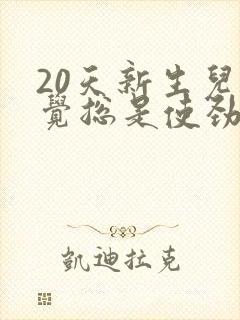 20天新生兒
覺總是使勁
凱迪拉克